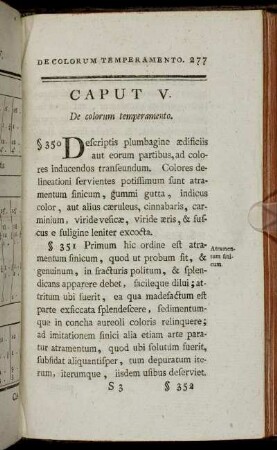 DE COLORUM TEMPERAMENTO. 277
CAPUT V.
De colorum temperamento.
§ 350 Descriptis plumbagine ædificiis
aut eorum partibus, ad colo-
res inducendos transeundum. Colores de-
lineationi servientes potissimum sunt atra-
mentum sinicum, gummi gutta, indicus
color, aut alius cæruleus, cinnabaris, car-
minium, viride vesicæ, viride æris, & fus-
cus e fuligine leniter excocta.
§ 351 Primum hic ordine est atra-
mentum sinicum, quod ut probum sit, &
genuinum, in fracturis politum, & splen-
dicans apparere debet, facileque dilui; at-
tritum ubi fuerit, ea qua madefactum est
parte exsiccata splendescere, sedimentum-
que in concha aureoli coloris relinquere;
ad imitationem sinici alia etiam arte para-
tur atramentum, quod ubi solutum fuerit,
subsidat aliquantisper, tum depuratum ite-
rum, iterumque, iisdem usibus deserviet.
Atramen-
tum sini-
cum.
S 3 § 352